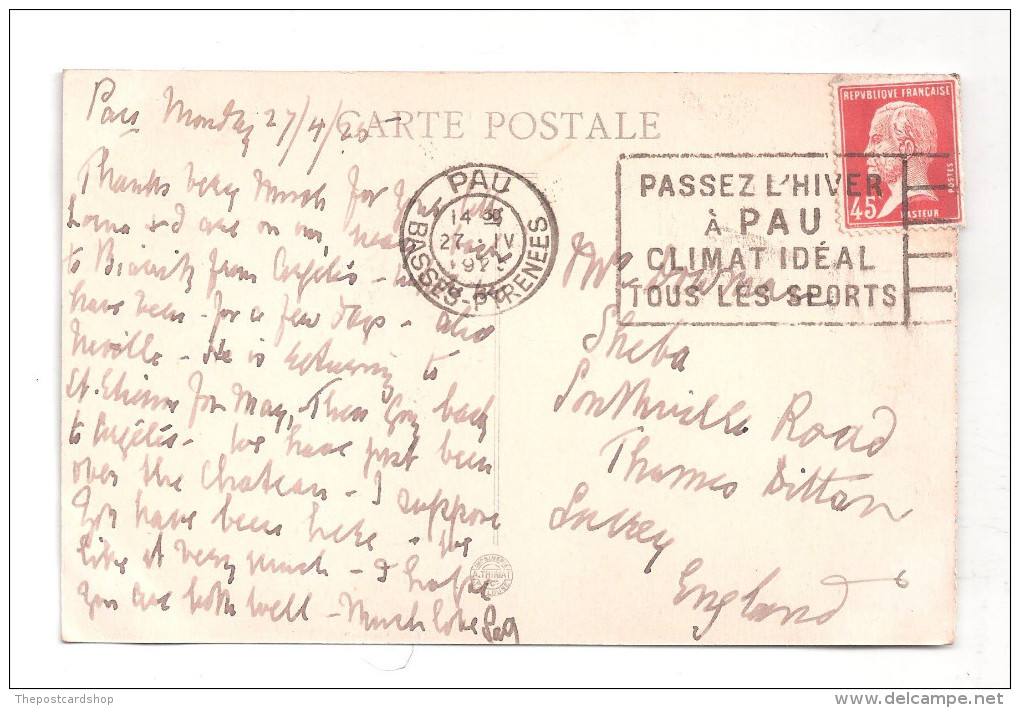 Pau Monday 27/4/25
CARTE POSTALE
Thanks very much for your
Lorna & I are on our way back
to Biarritz from Argelès - we
have been for a few days - also
Neville - He is returning to
St. Etienne for May, Then Goy back
to Argelès - We have just been
over the Chateau - I suppose
you have been here - We
like it very much - I hope
you are both well - Much love
PAU
14
27 - IV
BASSES-PYRENEES
PASSEZ L'HIVER
À PAU
CLIMAT IDÉAL
TOUS LES SPORTS
REPVBLIQVE FRANÇAISE
POSTES
45c
PASTEUR
Mrs
Sheba
Southville Road
Thames Ditton
Surrey
England
A.THIRIAT
Thepostcardshop
www.delcampe.net